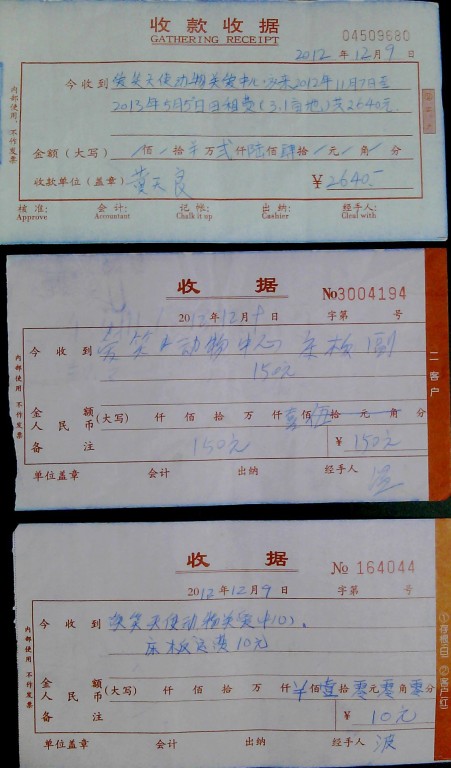 收款收据
GATHERING RECEIPT
04509680
2012 年 12 月 9 日
今收到 爱笑天使动物关爱中心 2012年11月7日至
2013年5月5日田租费(3.1亩地)共2640元
金额(大写) 佰 拾 万 贰 仟 陆 佰 肆 拾 元 角 分
收款单位(盖章) 黄天良 ¥ 2640.-
核准: 会计: 记帐: 出纳: 经手人:
Approve Accountant Chalk it up Cashier Cleal with
内部使用、不作发票
收 据
No3004194
2012年12月9日 字第 号
今收到 爱笑 动物中心 床板
150元
金额 人民币 (大写) 仟 佰 拾 万 仟 壹 佰 伍 拾 元 角 分
备注 150元 ¥ 150元
单位盖章 会计 出纳 经手人
内部使用 不作发票
二 客户
收 据
No 164044
2012年12月9日 字第 号
今收到 爱笑天使动物关爱中心
床板运费10元
金额 人民币 (大写) 仟 佰 拾 万 仟 ¥ 佰 壹 拾 零 元 零 角 零 分
¥ 10元
单位盖章 会计 出纳 经手人 波
内部使用 不作发票
①存根(白) ②客户(红)